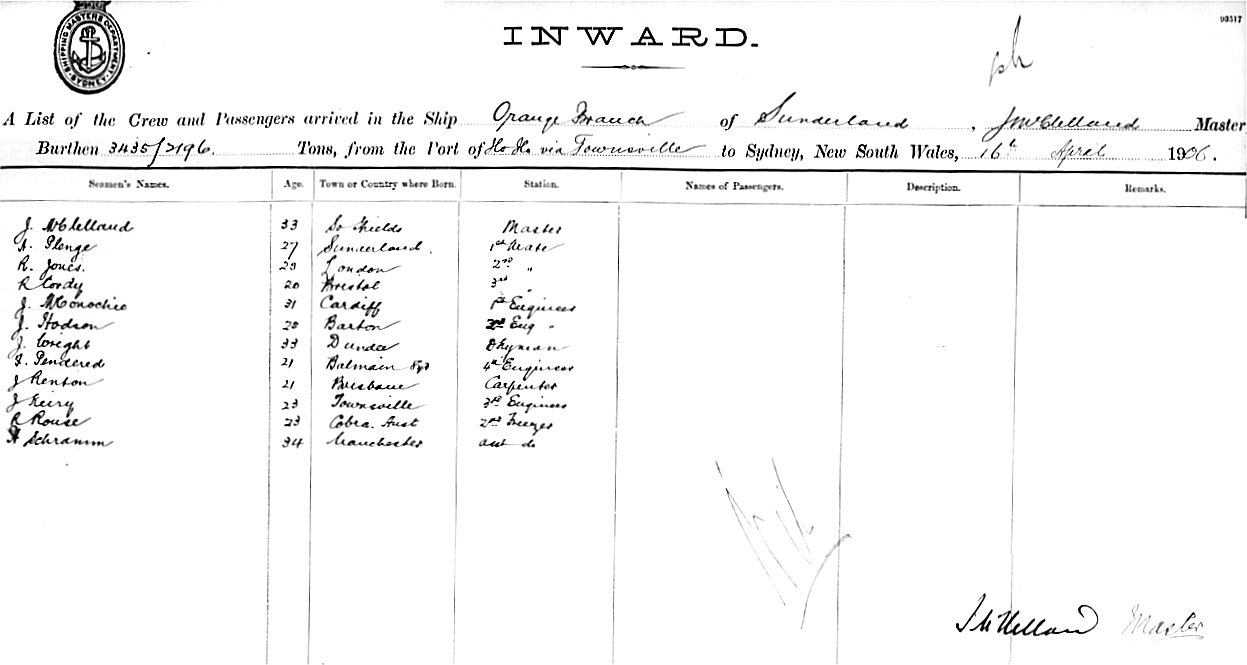 SHIPPING MASTERS DEPARTMENT SYDNEY
93517
INWARD.
A List of the Crew and Passengers arrived in the Ship Orange Branch of Sunderland, J McClelland Master
Burthen 3435/2196. Tons, from the Port of Ilo Ilo via Townsville to Sydney, New South Wales, 16th April 1906.
Seamen's Names. Age. Town or Country where Born. Station. Names of Passengers. Description. Remarks.
J. McClelland 33 So Shields Master
A. Plenge 27 Sunderland. 1st Mate
R. Jones. 29 London 2nd "
R Cordy 20 Bristol 3rd "
J. McConochie 31 Cardiff 1st Engineer
J. Hodson Barton Eng "
J. Wright 33 Dundee Dkyman
Pendered 21 Balmain Syd 4th Engineer
J Renton 21 Brisbane Carpenter
J Keiry 23 Townsville 3rd Engineer
R Rouse 23 Cobra. Aust 2nd Freezer
A Schramm 34 Manchester asst do
Nil
J McClelland Master